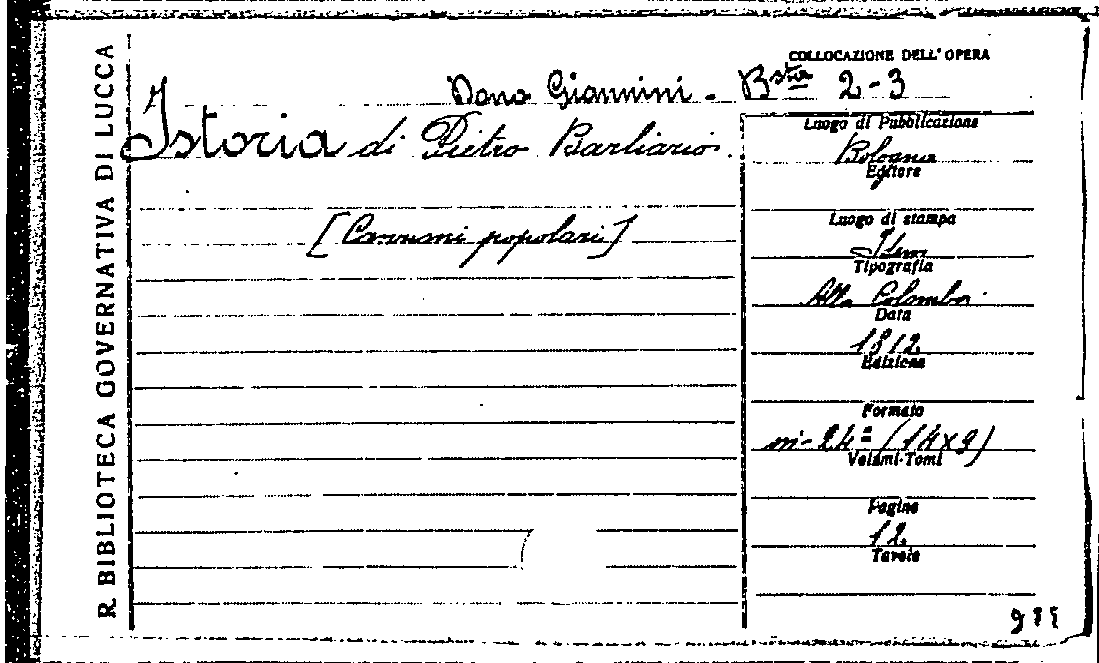 R. BIBLIOTECA GOVERNATIVA DI LUCCA
COLLOCAZIONE DELL' OPERA
Dono Giannini. Bsta 2-3
Istoria di Pietro Barliario.
[Canzoni popolari]
Luogo di Pubblicazione
Bologna
Editore
Luogo di stampa
Idem
Tipografia
Alla Colomba
Data
1812
Edizione
Formato
in-24° (14x9)
Volumi-Tomi
Pagine
12
Tavole